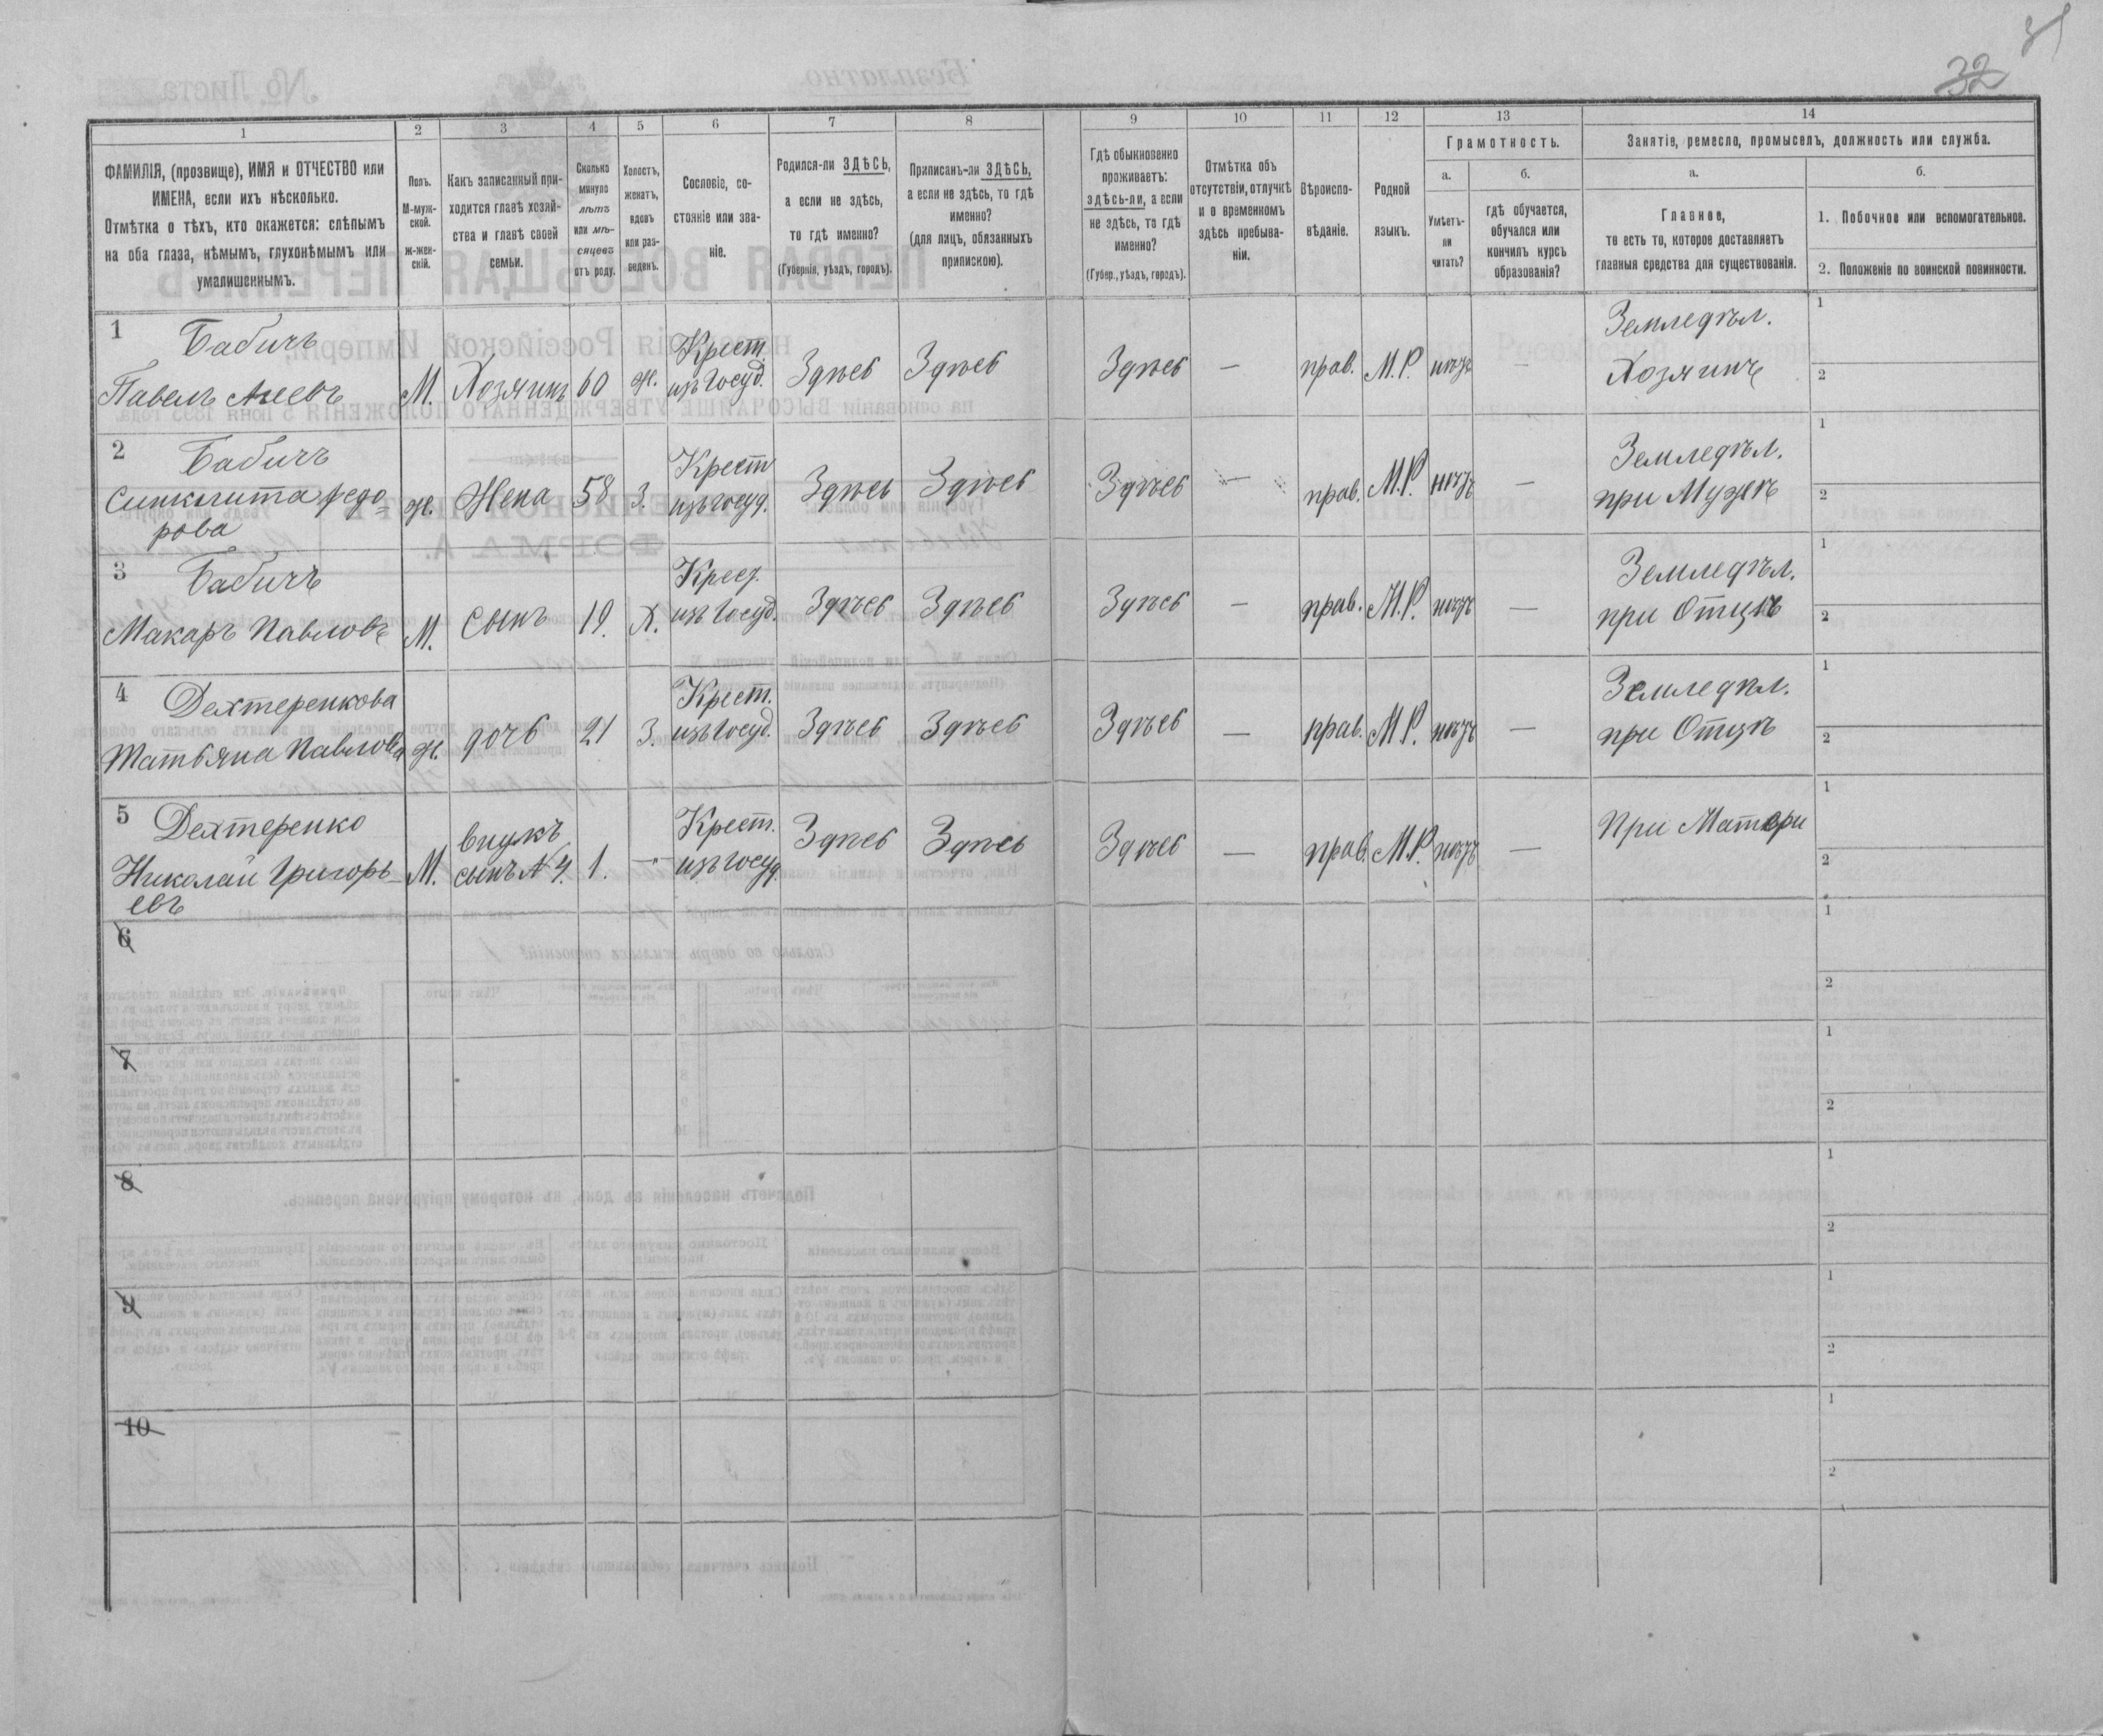 31
32
1 2 3 4 5 6 7 8 9 10 11 12 13 14
ФАМИЛІЯ, (прозвище), ИМЯ и ОТЧЕСТВО или ИМЕНА, если ихъ нѣсколько.
Отмѣтка о тѣхъ, кто окажется: слѣпымъ на оба глаза, нѣмымъ, глухонѣмымъ или умалишеннымъ.
Полъ. М-мужской. Ж-женскій.
Какъ записанный приходится главѣ хозяйства и главѣ своей семьи.
Сколько минуло лѣтъ или мѣсяцевъ отъ роду.
Холостъ, женатъ, вдовъ или разведенъ.
Сословіе, состояніе или званіе.
Родился-ли ЗДѢСЬ, а если не здѣсь, то гдѣ именно?
(Губернія, уѣздъ, городъ).
Приписанъ-ли ЗДѢСЬ, а если не здѣсь, то гдѣ именно?
(для лицъ, обязанныхъ припискою).
Гдѣ обыкновенно проживаетъ: здѣсь-ли, а если не здѣсь, то гдѣ именно?
(Губер., уѣздъ, городъ).
Отмѣтка объ отсутствіи, отлучкѣ и о временномъ здѣсь пребываніи.
Вѣроисповѣданіе.
Родной языкъ.
Грамотность.
а. Умѣетъ-ли читать?
б. гдѣ обучается, обучался или кончилъ курсъ образованія?
Занятіе, ремесло, промыселъ, должность или служба.
а. Главное, то есть то, которое доставляетъ главныя средства для существованія.
б. 1. Побочное или вспомогательное.
2. Положеніе по воинской повинности.
1 Бабичъ
Павелъ М. Хозяинъ 60 ж. Крест. изъ Госуд. Здѣсь Здѣсь Здѣсь — прав. М.Р. нѣтъ — Земледѣл. Хозяинъ 1 2
2 Бабичъ
Синклита Федо=
рова ж. Жена 58 З. Крест изъ Госуд. Здѣсь Здѣсь Здѣсь — прав. М.Р. нѣтъ — Земледѣл. при Мужѣ 1 2
3 Бабичъ
Макаръ Павловъ М. Сынъ 19. Х. Крест. изъ Госуд. Здѣсь Здѣсь Здѣсь — прав. М.Р. нѣтъ — Земледѣл. при Отцѣ 1 2
4 Дехтеренкова
Татьяна Павлова ж. дочь 21 З. Крест. изъ Госуд. Здѣсь Здѣсь Здѣсь — прав. М.Р. нѣтъ — Земледѣл. при Отцѣ 1 2
5 Дехтеренко
Николай Григорь-
евъ М. внукъ сынъ N 4. 1. —"— Крест. изъ Госуд. Здѣсь Здѣсь Здѣсь — прав. М.Р. нѣтъ — При Матери 1 2
6 1 2
7 1 2
8 1 2
9 1 2
10 1 2